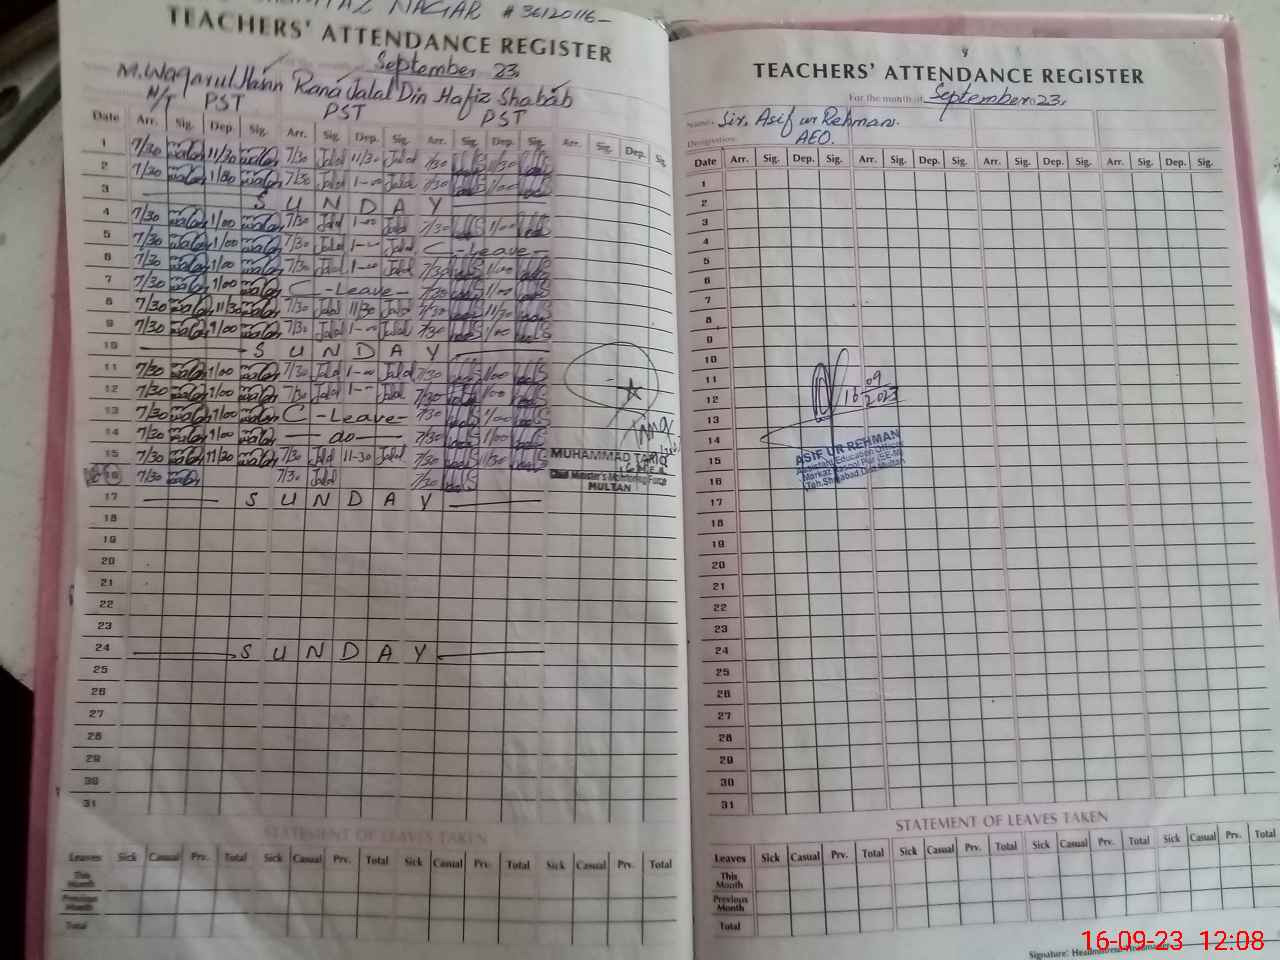 NAGAR # 36120116-
TEACHERS' ATTENDANCE REGISTER
September 23,
M. Waqarul Hasan Rana Jalal Din Hafiz Shabab
H/T PST PST PST
Date Arr. Sig. Dep. Sig. Arr. Sig. Dep. Sig. Arr. Sig. Dep. Sig. Arr. Sig. Dep. Sig.
1 7/30 11/30 7/30 Jalal 11/30 Jalal 7/30 11/30
2 7/30 1/00 7/30 Jalal 1-00 Jalal 7/30 1/00
3 S U N D A Y
4 7/30 1/00 7/30 Jalal 1-00 Jalal 7/30 1/00
5 7/30 1/00 7/30 Jalal 1-00 Jalal C - Leave -
6 7/30 1/00 7/30 Jalal 1-00 Jalal 7/30 1/00
7 7/30 1/00 C - Leave - 7/30 1/00
8 7/30 11/30 7/30 Jalal 11/30 Jalal 7/30 11/30
9 7/30 1/00 7/30 Jalal 1-00 Jalal 7/30 1/00
10 S U N D A Y
11 7/30 1/00 7/30 Jalal 1-00 Jalal 7/30 1/00
12 7/30 1/00 7/30 Jalal 1-00 Jalal 7/30 1/00
13 7/30 1/00 C - Leave - 7/30 1/00
14 7/30 1/00 do 7/30 1/00
15 7/30 11/30 7/30 Jalal 11-30 Jalal 7/30 11/30
16 7/30 7/30 Jalal 7/30
MUHAMMAD TARIQ
Chief Minister's Monitoring Force
MULTAN
17 S U N D A Y
18
19
20
21
22
23
24 S U N D A Y
25
26
27
28
29
30
31
STATEMENT OF LEAVES TAKEN
Leaves Sick Casual Prv. Total Sick Casual Prv. Total Sick Casual Prv. Total Sick Casual Prv. Total
This Month
Previous Month
Total
TEACHERS' ATTENDANCE REGISTER
For the month of September 23,
Name: Sir, Asif ur Rehman.
Designation AEO.
Date Arr. Sig. Dep. Sig. Arr. Sig. Dep. Sig. Arr. Sig. Dep. Sig. Arr. Sig. Dep. Sig.
1
2
3
4
5
6
7
8
9
10
11
12
13
14
15
16
17
18
19
20
21
22
23
24
25
26
27
28
29
30
31
16 09 2023
ASIF UR REHMAN
Assistant Education Officer
STATEMENT OF LEAVES TAKEN
Leaves Sick Casual Prv. Total Sick Casual Prv. Total Sick Casual Prv. Total Sick Casual Prv. Total
This Month
Previous Month
Total
Signature: Headmistress/Headmaster
16-09-23 12:08